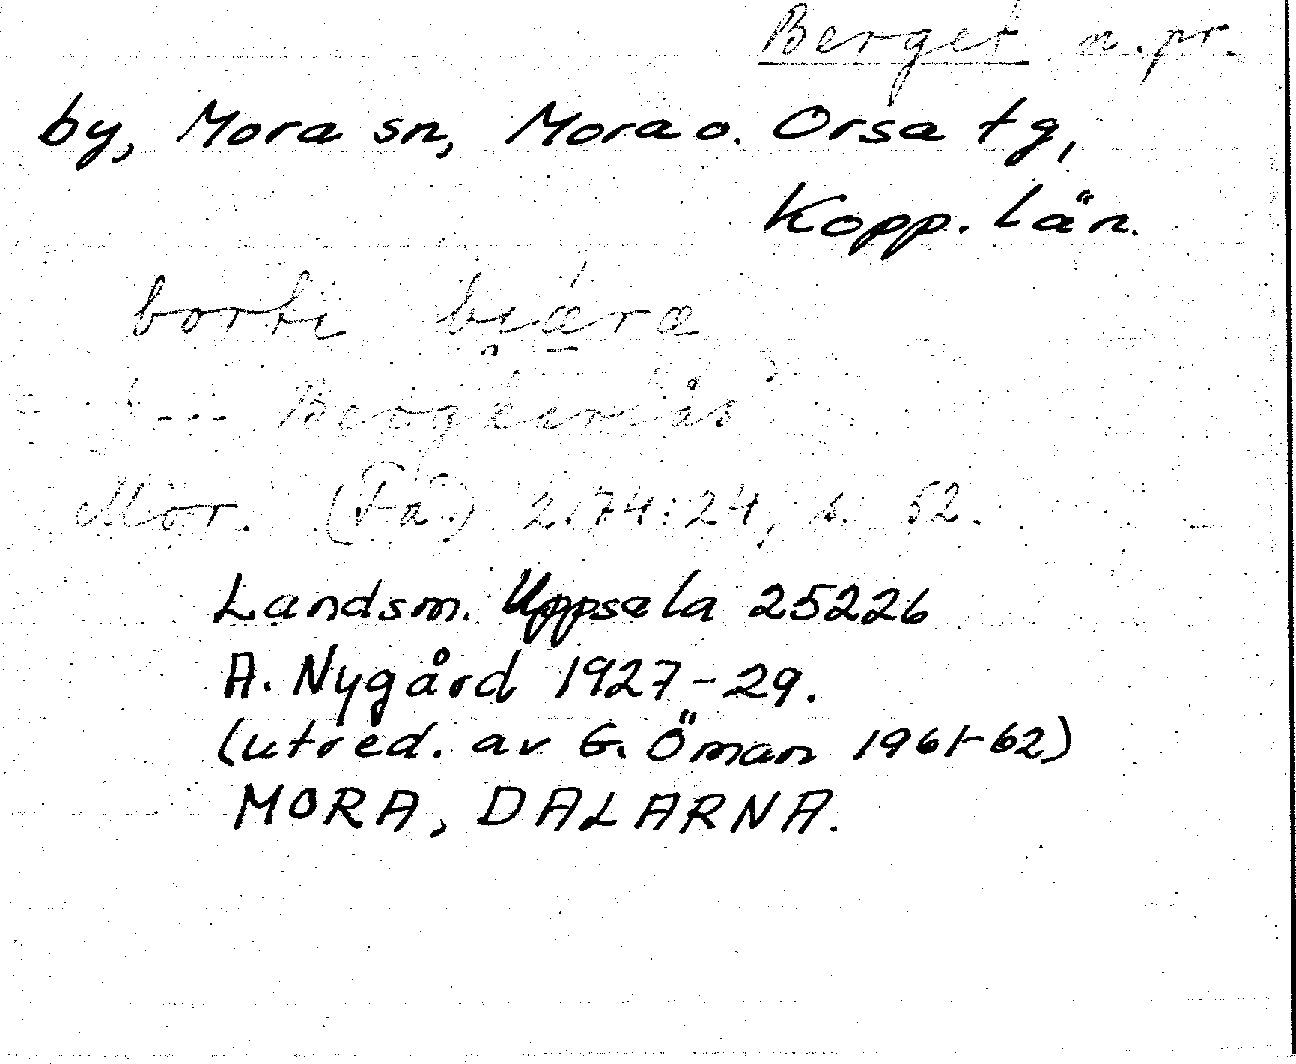 Berget n.pr.
by, Mora sn, Mora o. Orsa tg,
Kopp. län.
borti
Mor. (Få.) 2.74:24, s. 52.
Landsm. Uppsala 25226
A. Nygård 1927-29.
(utred. av G. Öman 1961-62)
MORA, DALARNA.